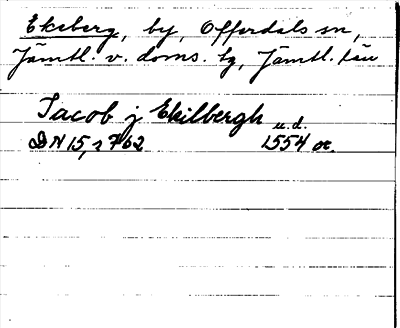 Ekeberg, by, Offerdals sn,
Jämtl. v. doms. tg, Jämtl. län
Jacob j Ekilbergh u.d.
DN 15, s 762 1554 or.